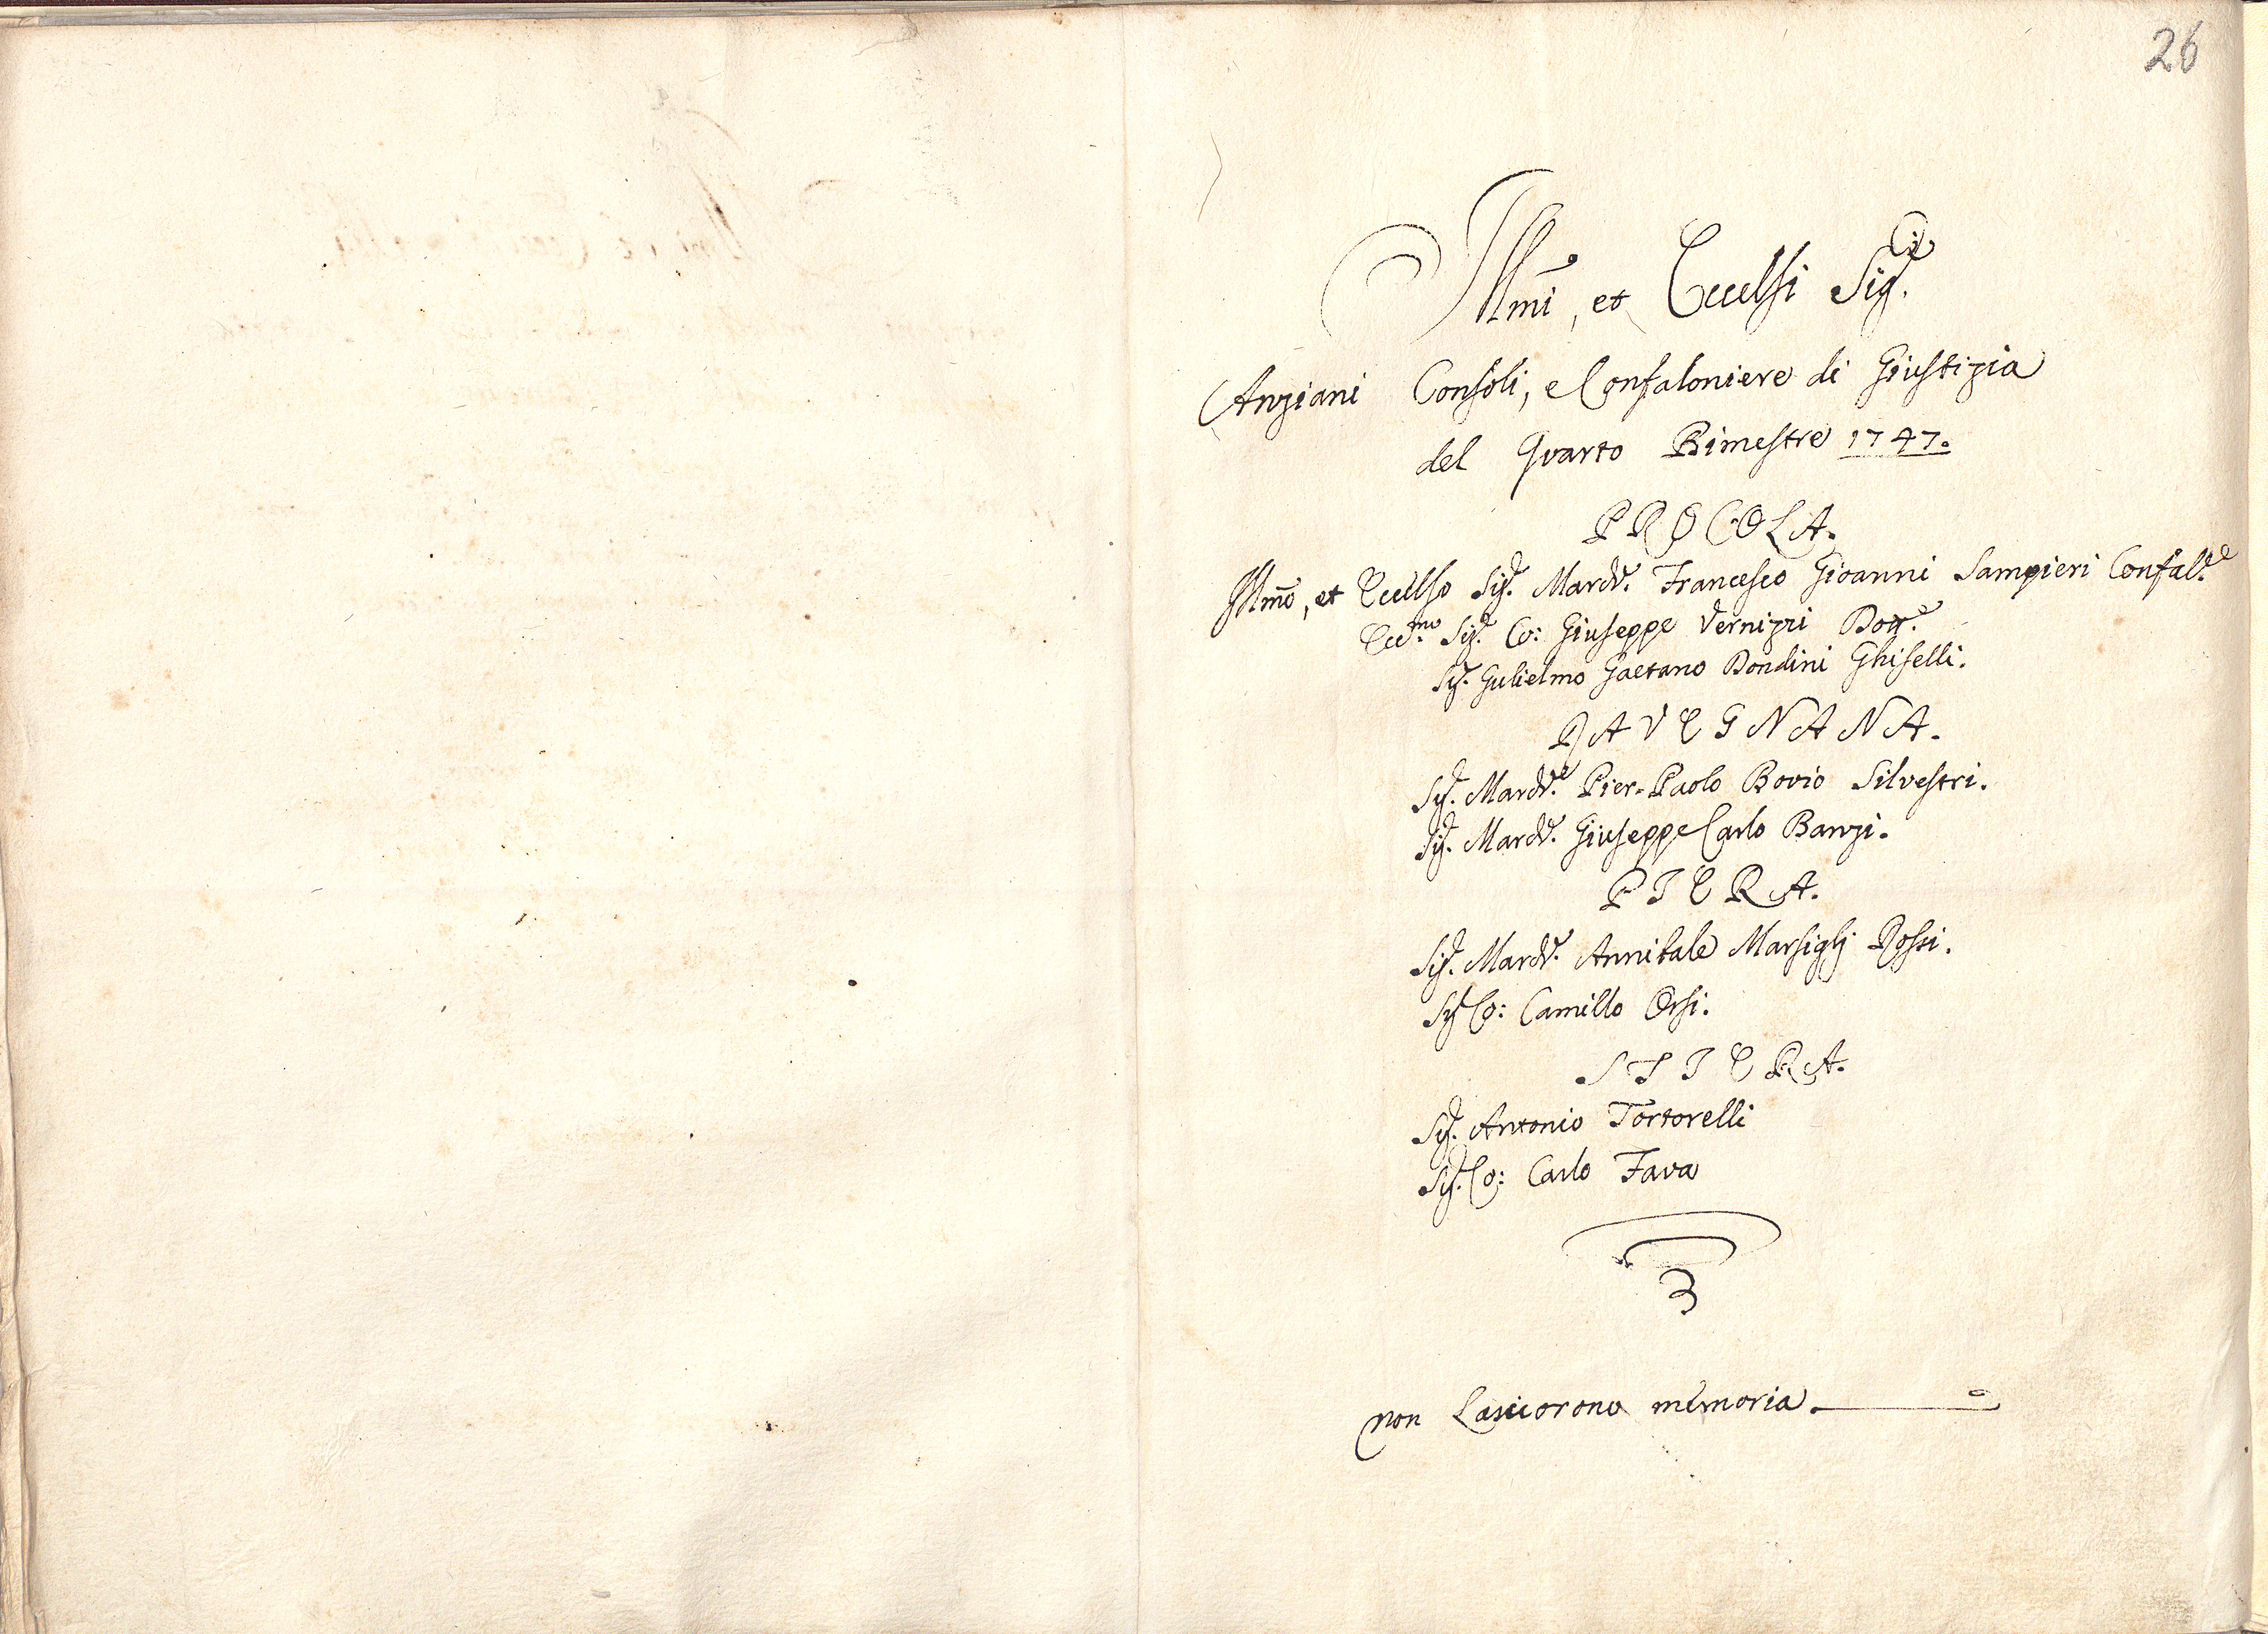 26
Illmi, et Eccelsi Sig.ri
Anziani Consoli, e Confaloniere di Giustizia
del Quarto Bimestre 1747.
PROCOLA.
Illmo, et Eccelso Sig.r March.e Francesco Gioanni Sampieri Confal.re
Ecc.mo Sig.r Co: Giuseppe Vernizzi Dott.re
Sig.r Gulielmo Gaetano Dondini Ghiselli.
RAVEGNANA.
Sig.r March.e Pier-Paolo Bovio Silvestri.
Sig.r March.e Giuseppe Carlo Banzi.
PIERA.
Sig.r March.e Annibale Marsiglj Rossi.
Sig.r Co: Camillo Orsi.
STIERA.
Sig.r Antonio Tortorelli
Sig.r Co: Carlo Fava
non Lasciorono memoria.